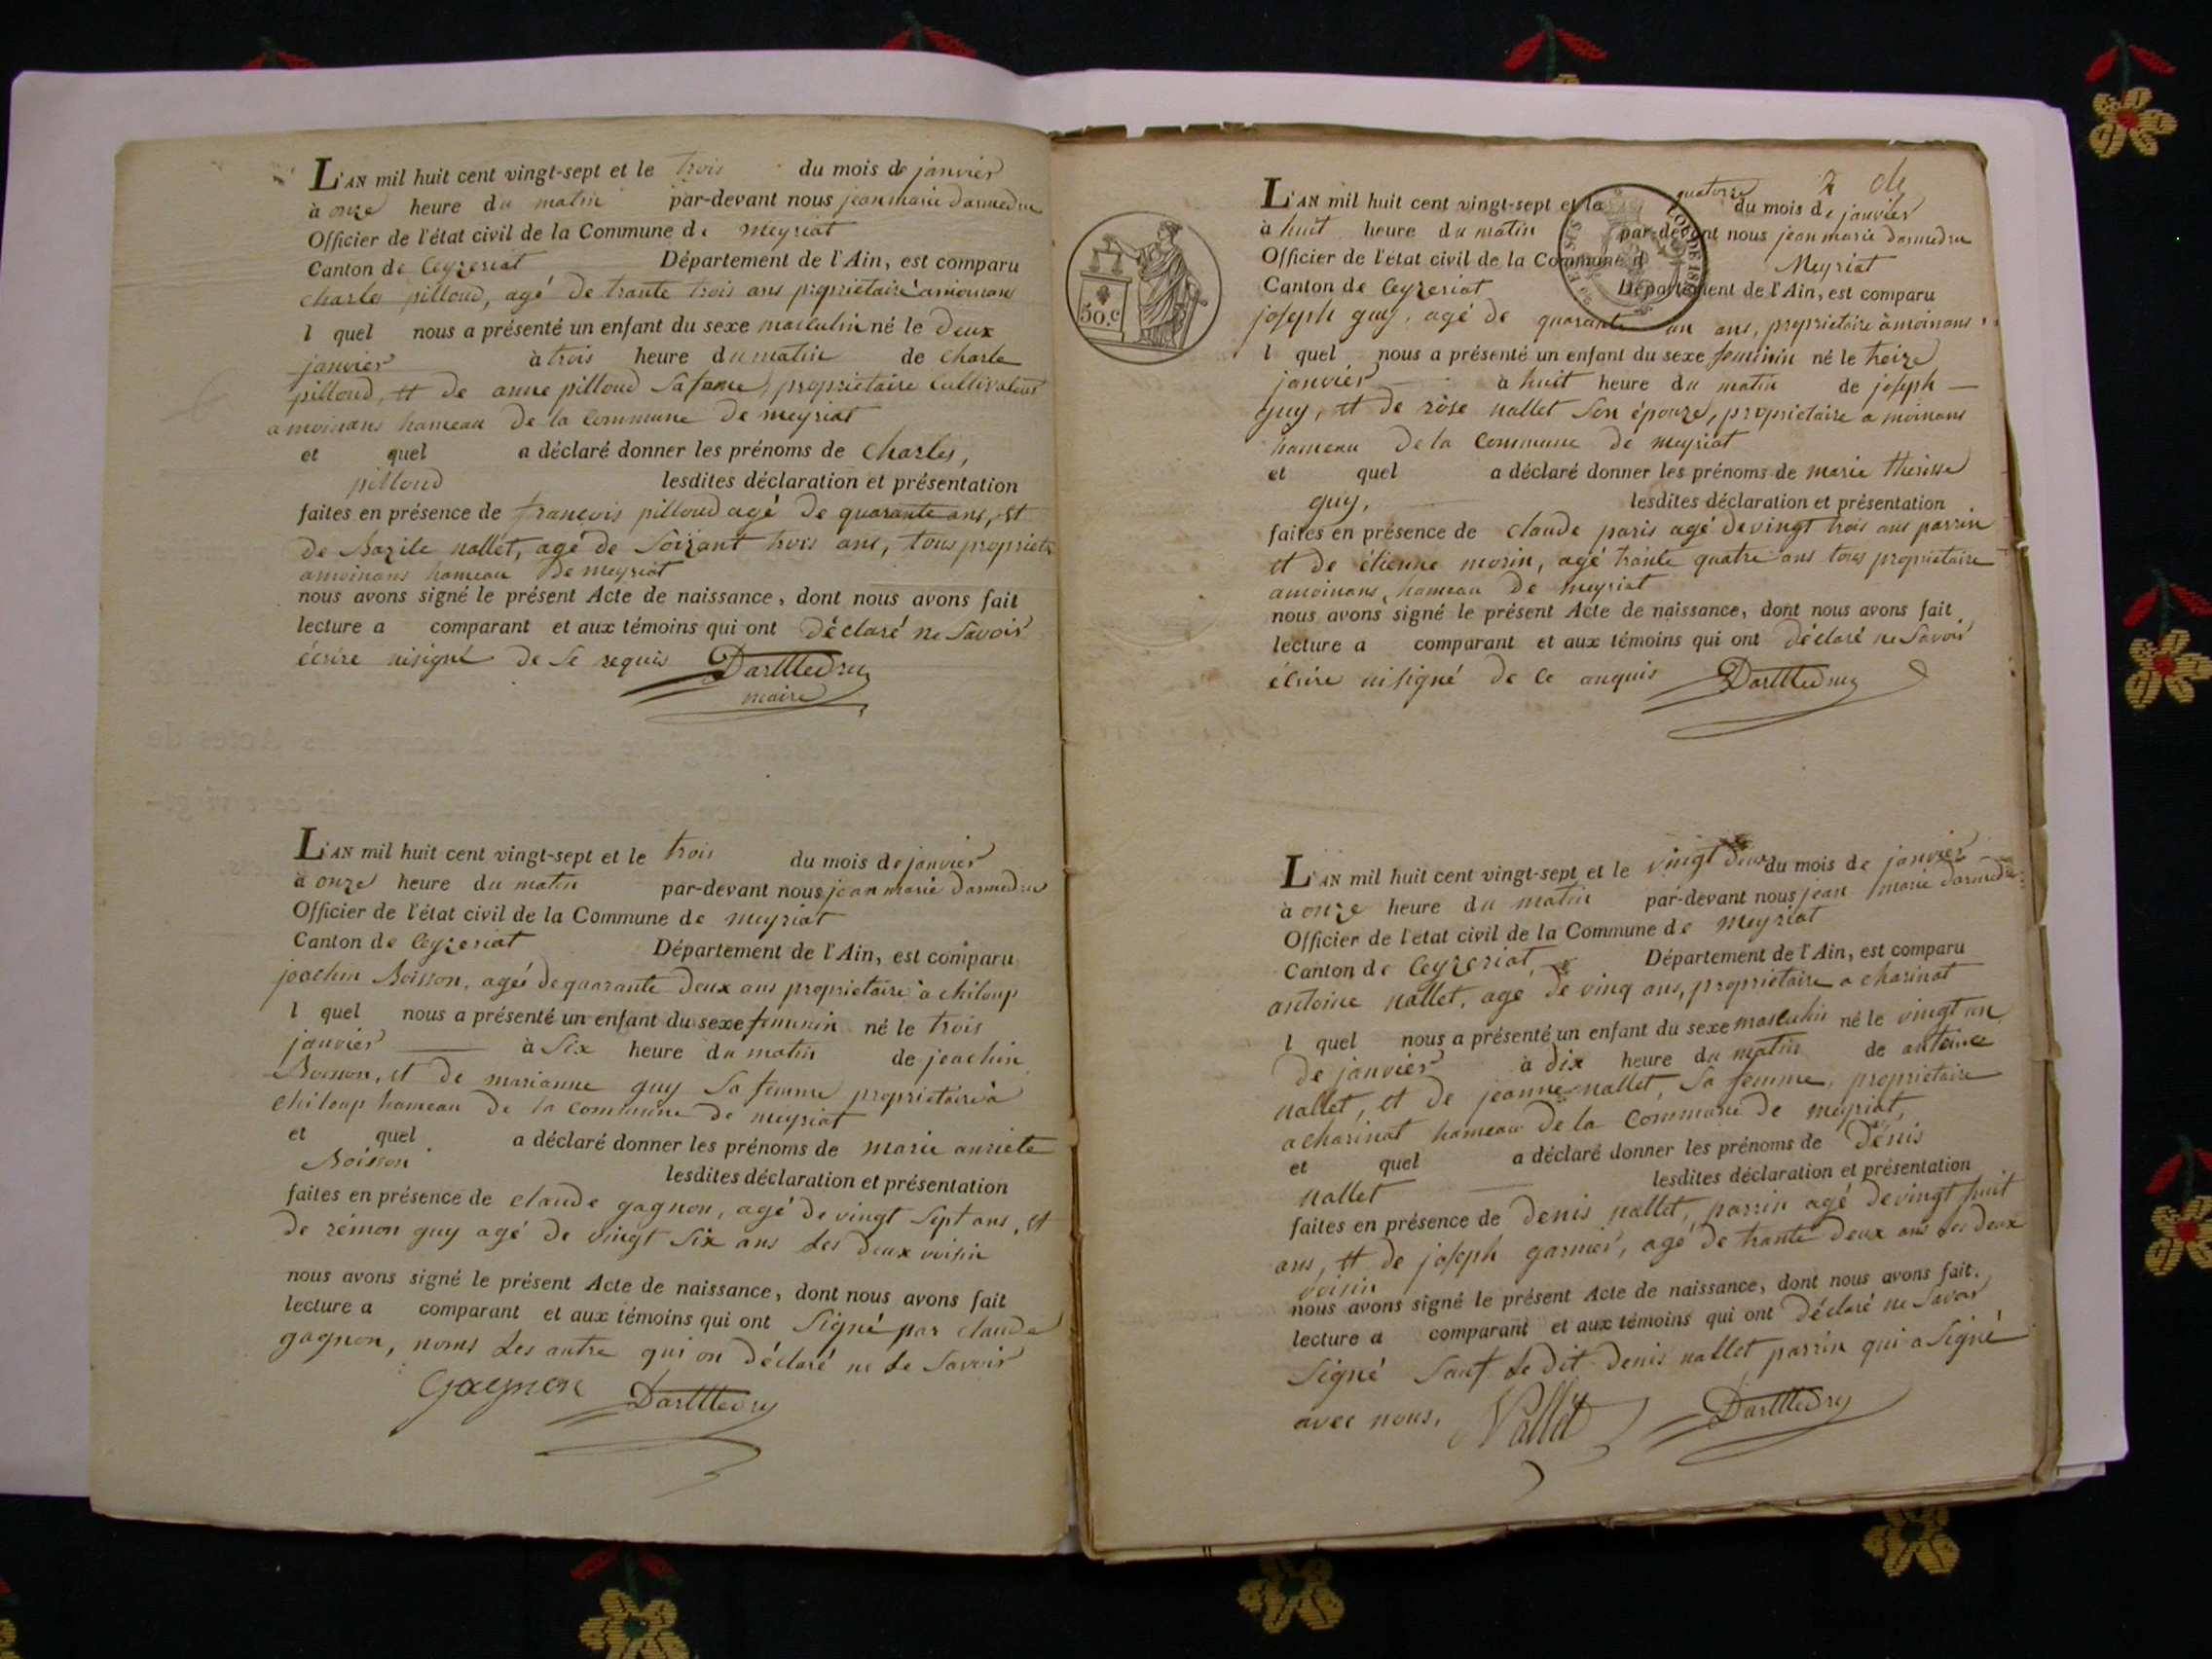 L'AN mil huit cent vingt-sept et le trois du mois de janvier
à onze heure du matin par-devant nous jean marie darmedru
Officier de l'état civil de la Commune de meyriat
Canton de Ceyzeriat Département de l'Ain, est comparu
Charles pilloud, agé de trante trois ans propriétaire amoinans
l quel nous a présenté un enfant du sexe masculin né le deux
janvier à trois heure du matin de Charle
pilloud, et de anne pilloud sa fame, propriétaire Cultivateur
a moinans hameau de la Commune de meyriat
et quel a déclaré donner les prénoms de Charles,
pilloud lesdites déclaration et présentation
faites en présence de françois pilloud agé de quarante ans, et
de Bazile nallet, agé de soizant trois ans, tous propriet
amoinans hameau de meyriat
nous avons signé le présent Acte de naissance, dont nous avons fait
lecture a comparant et aux témoins qui ont déclaré ne savoir
écrire nisigné de se requis DarMedru
maire
L'AN mil huit cent vingt-sept et le trois du mois de janvier
à onze heure du matin par-devant nous jean marie darmedru
Officier de l'état civil de la Commune de meyriat
Canton de Ceyzeriat Département de l'Ain, est comparu
joachin Boisson, agés de quarante deux ans propriétaire a chiloup
l quel nous a présenté un enfant du sexe feminin né le trois
janvier à six heure du matin de joachin
Boisson, et de marianne guy sa femme propriétaire à
chiloup hameau de la commune de meyriat
et quel a déclaré donner les prénoms de marie anriete
Boisson lesdites déclaration et présentation
faites en présence de claude gagnon, agé de vingt sept ans, et
de rémon guy agé de vingt six ans les deux voisin
nous avons signé le présent Acte de naissance, dont nous avons fait
lecture a comparant et aux témoins qui ont signé par claude
gagnon, noms les autre qui on déclaré ne le savoir
Gagnon DarMedru
2 de
50.c
LOI DE
L'AN mil huit cent vingt-sept et le quatorze du mois de janvier
à huit heure du matin par-devant nous jean marie darmedru
Officier de l'état civil de la Commune d Meyriat
Canton de Ceyzeriat Département de l'Ain, est comparu
joseph guy, agé de quarante un ans, propriétaire à moinans
l quel nous a présenté un enfant du sexe feminin né le treize
janvier à huit heure du matin de joseph
guy, et de rose nallet son épouze, propriétaire a moinans
hameau de la Commune de meyriat
et quel a déclaré donner les prénoms de marie therisse
guy, lesdites déclaration et présentation
faites en présence de claude paris agé de vingt trois ans parrin
et de étienne morin, agé trante quatre ans tous propriétaire
amoinans, hameau de meyriat
nous avons signé le présent Acte de naissance, dont nous avons fait
lecture a comparant et aux témoins qui ont déclaré ne savoir
écrire nisigné de ce anquis DarMedru
L'AN mil huit cent vingt-sept et le vingt deux du mois de janvier
à onze heure du matin par-devant nous jean marie darmedru
Officier de l'état civil de la Commune de meyriat
Canton de Ceyzeriat, Département de l'Ain, est comparu
antoine nallet, agé de vinq ans, propriétaire a charinat
l quel nous a présenté un enfant du sexe masculin né le vingt un
de janvier à dix heure du matin de antoine
nallet, et de jeanne nallet, sa femme, propriétaire
a charinat hameau de la Commune de meyriat,
et quel a déclaré donner les prénoms de Dénis
nallet lesdites déclaration et présentation
faites en présence de denis nallet, parrin agé de vingt huit
ans, et de joseph garnier, agé de trante deux ans les deux
voisin
nous avons signé le présent Acte de naissance, dont nous avons fait.
lecture a comparant et aux témoins qui ont déclaré ne savoir
signé sauf le dit denis nallet parrin qui a signé
avec nous, Nallet DarMedru